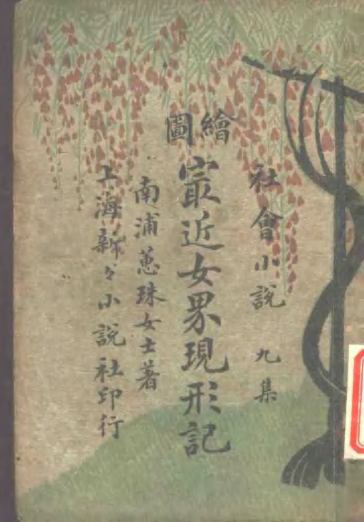 社會小說 九集
繪圖
㝡近女界現形記
南浦蕙珠女士著
上海新々小說社印行